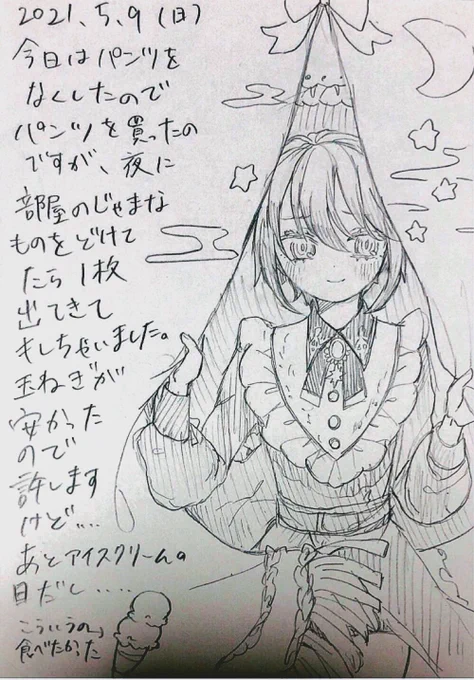 2021.5.9(日)
今日はパンツを
なくしたので
パンツを買ったの
ですが、夜に
部屋のじゃまな
ものをどけて
たら1枚
出てきて
キレちゃいました。
玉ねぎが
安かった
ので
許します
けど....
あとアイスクリームの
日だし.....
こういうの、
食べたかった